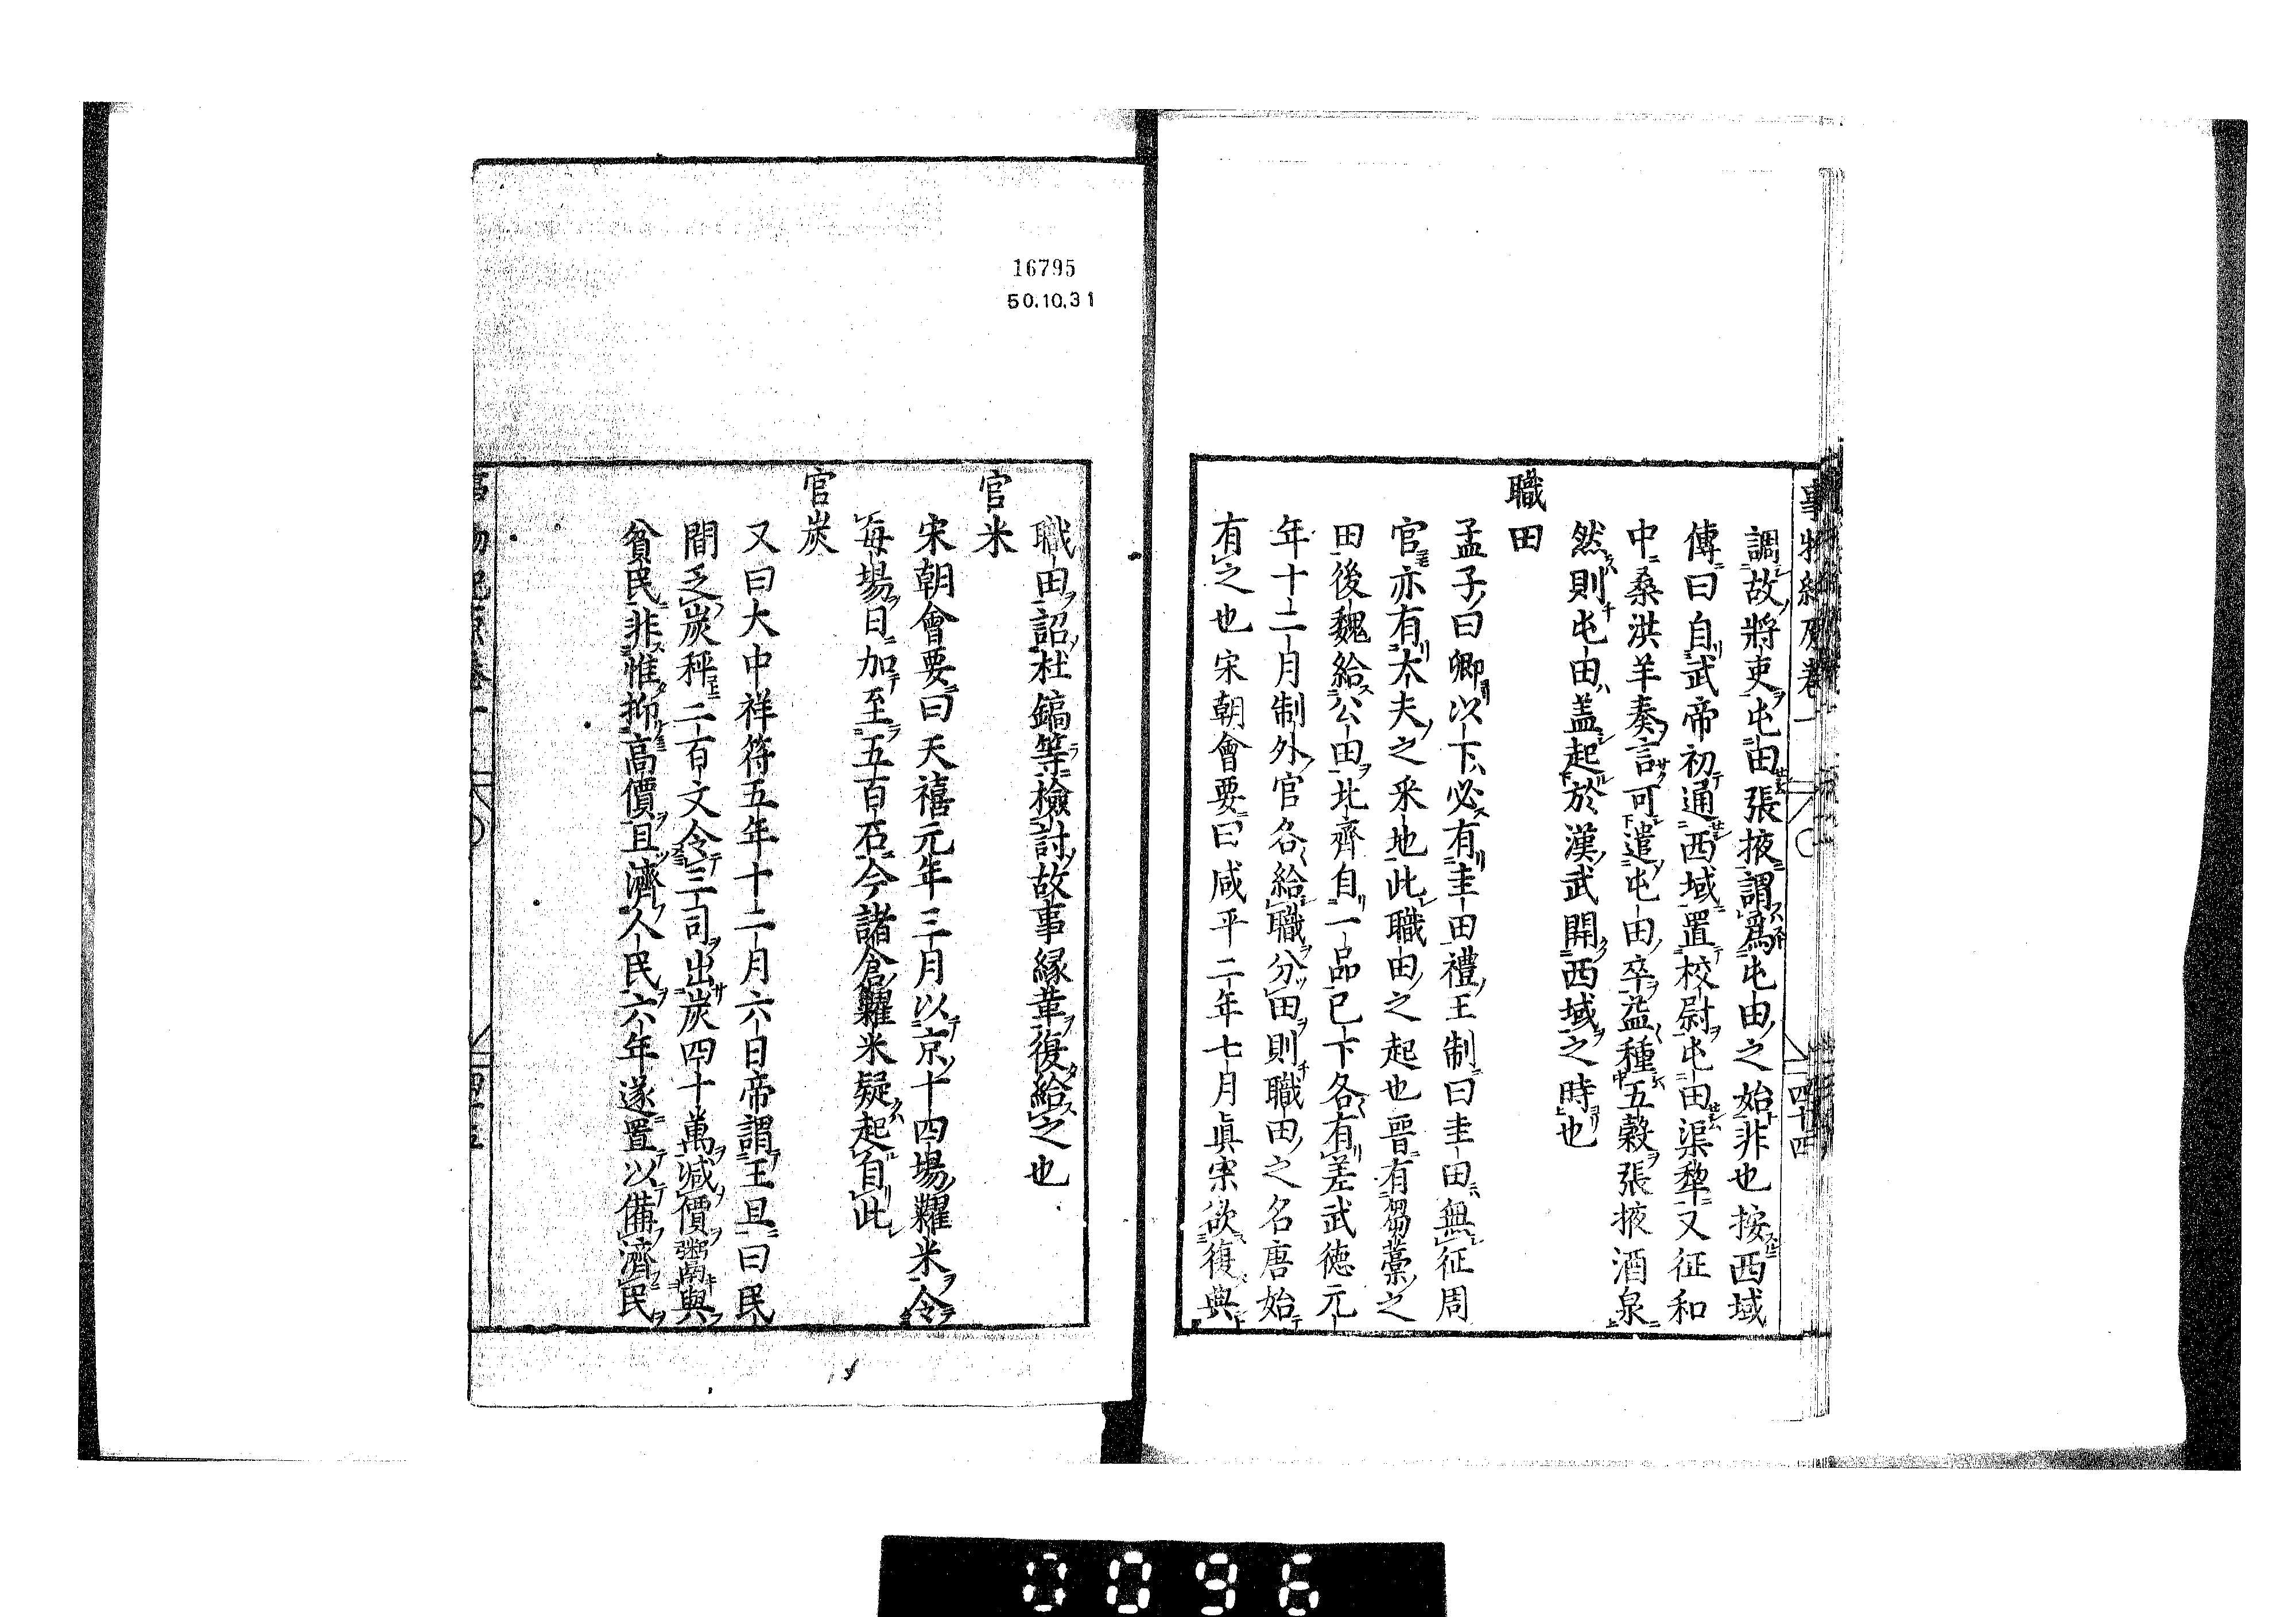 事物紀原卷一
四十四
調故將吏屯田張掖謂為屯田之始非也按西域
傳曰自武帝初通西域置校尉屯田渠犂又征和
中桑洪羊奏言可遣屯田卒益種五穀張掖酒泉
然則屯田盖起於漢武開西域之時也
職田
孟子曰卿以下必有圭田禮王制曰圭田無征周
官亦有大夫之采地此職田之起也晉有芻藁之
田後魏給公田北齊自一品已下各有差武徳元
年十二月制外官各給職分田則職田之名唐始
有之也宋朝會要曰咸平二年七月眞宗欲復典
職田詔杜鎬等檢討故事縁革復給之也
官米
宋朝會要曰天禧元年三月以京十四場糶米令
每場日加至五百石今諸倉糶米疑起自此
官炭
又曰大中祥符五年十二月六日帝謂王旦曰民
間乏炭秤二百文令三司出炭四十萬减價鬻與
貧民非惟抑高價且濟人民六年遂置以備濟民
事物紀原卷一
四十五
16795
50.10.31
0096